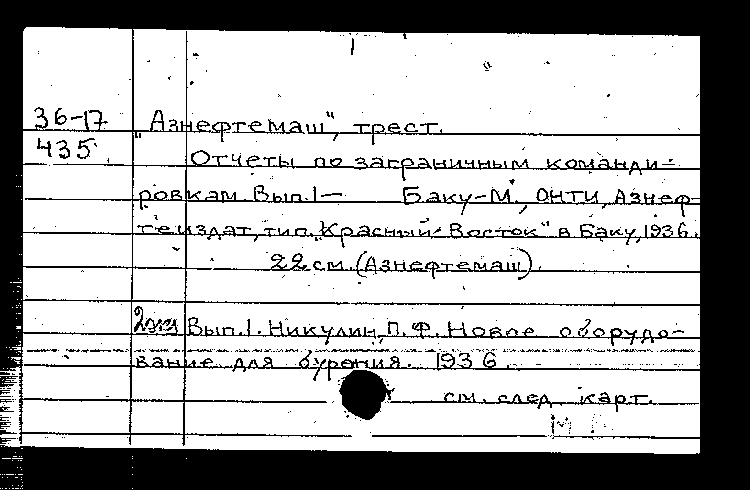 36-17 „Азнефтемаш", трест.
435 Отчеты по заграничным команди-
ровкам. Вып.1— Баку-М., ОНТИ, Азнеф-
теиздат, тип. „Красный Восток" в Баку, 1936.
22 см. (Азнефтемаш).
2экз Вып.1. Никулин, П. Ф. Новое оборудо-
вание для бурения. 1936.
см. след. карт.